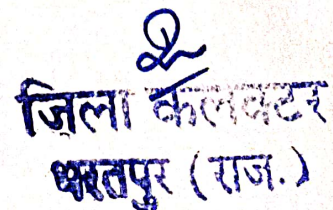 जिला कलक्टर
भरतपुर (राज.)